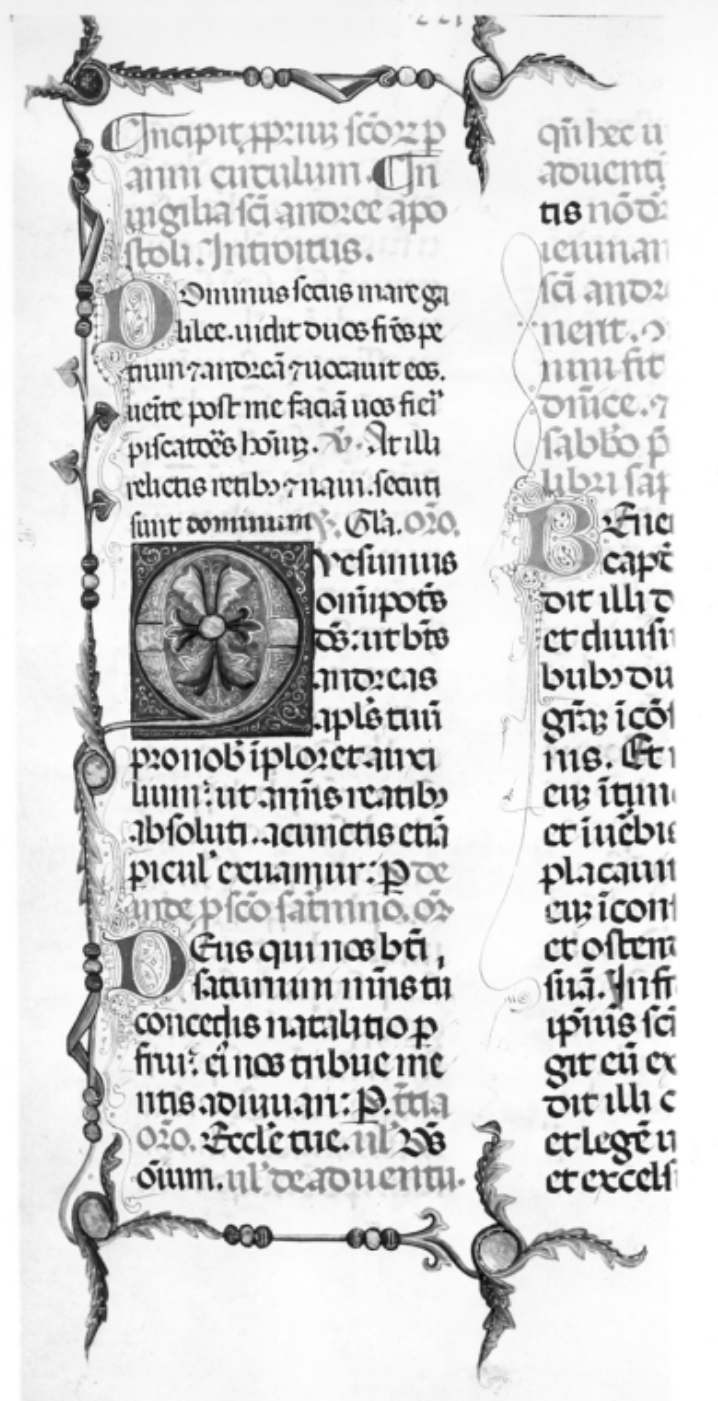 Incipit ꝓpriuꝫ sc̄oꝝ ꝑ
anni circulum. In
uigilia sc̄i andree apo
stoli. Introitus.
Dominus secus mare ga
lilee. uidit duos fr̄es pe
trum ⁊ andreā ⁊ uocauit eos.
uēite post me faciā uos fieri
piscatōēs hoīuꝫ. V̄. At illi
relictis retibꝫ ⁊ naui. secuti
sunt dominum V̄. Gl̄a. or̄o.
Quesumus
omīpotēs
ds̄: ut bt̄s
andreas
apls̄ tuū
pro nob̄ īploret auxi
lium: ut a nr̄is reatibꝫ
absoluti. a cunctis etiā
piculꝭ exuamur: P̄ de
inde ꝓ sc̄o sat̄nino. or̄
Deus qui nos bt̄i
saturnini mr̄is tui
concedis natalitio ꝑ
frui: eī nos tribue me
ritis adiuuari: P̄. tertia
or̄o. Eccle tue. ulꝭ Ds̄
oīum. ulꝭ de aduentu.
qn̄ hec ui
aduenti
tis nō dr̄
ieiunan
sc̄i andr
nerit.
num fit
dnīce. ⁊
sabb̄o p̄
libri sap
Bened
capt̄
dit illi d
et diuisi
bubꝫ du
gr̄aꝫ ī cōs
nis. Et
euꝫ ī tim
et ī uēbis
placauit
euꝫ ī con
et osten
suā. In fi
ip̄ius sc̄
git eū ex
dit illi c
et legē u
et excels